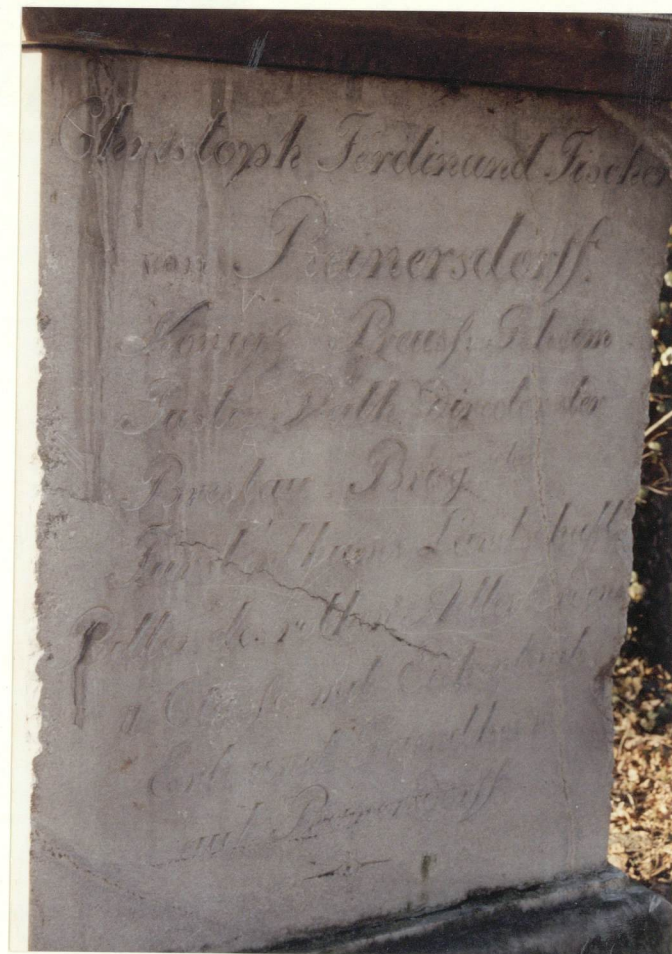 Christoph Ferdinand Fischer
von Reinersdorff.
Königl Preuss. Geheim
Justiz Rath Director der
Breslau Brieg
Fürstenthums Landschafft
Ritter des rothen Adler Ordens
Classe mit Eichenlaub
Erb und Grundherr
auf Reinersdorff